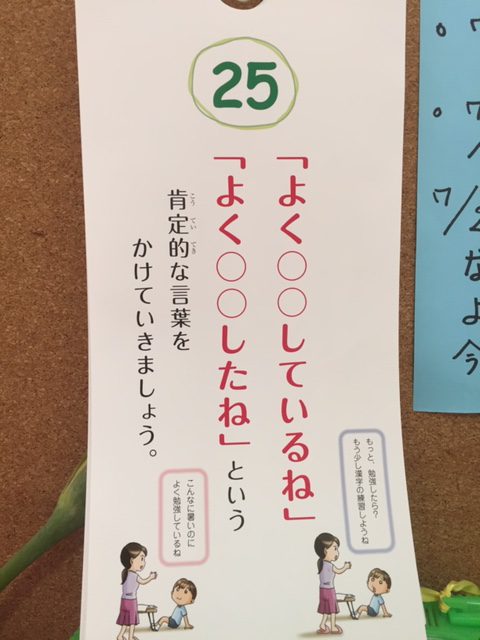 25
「よく○○しているね」
「よく○○したね」という
肯定的な言葉を
こうていてき
かけていきましょう。
もっと、勉強したら?
もう少し漢字の練習しようね
こんなに暑いのに
よく勉強しているね
7
7/
7/2
な
よ
今